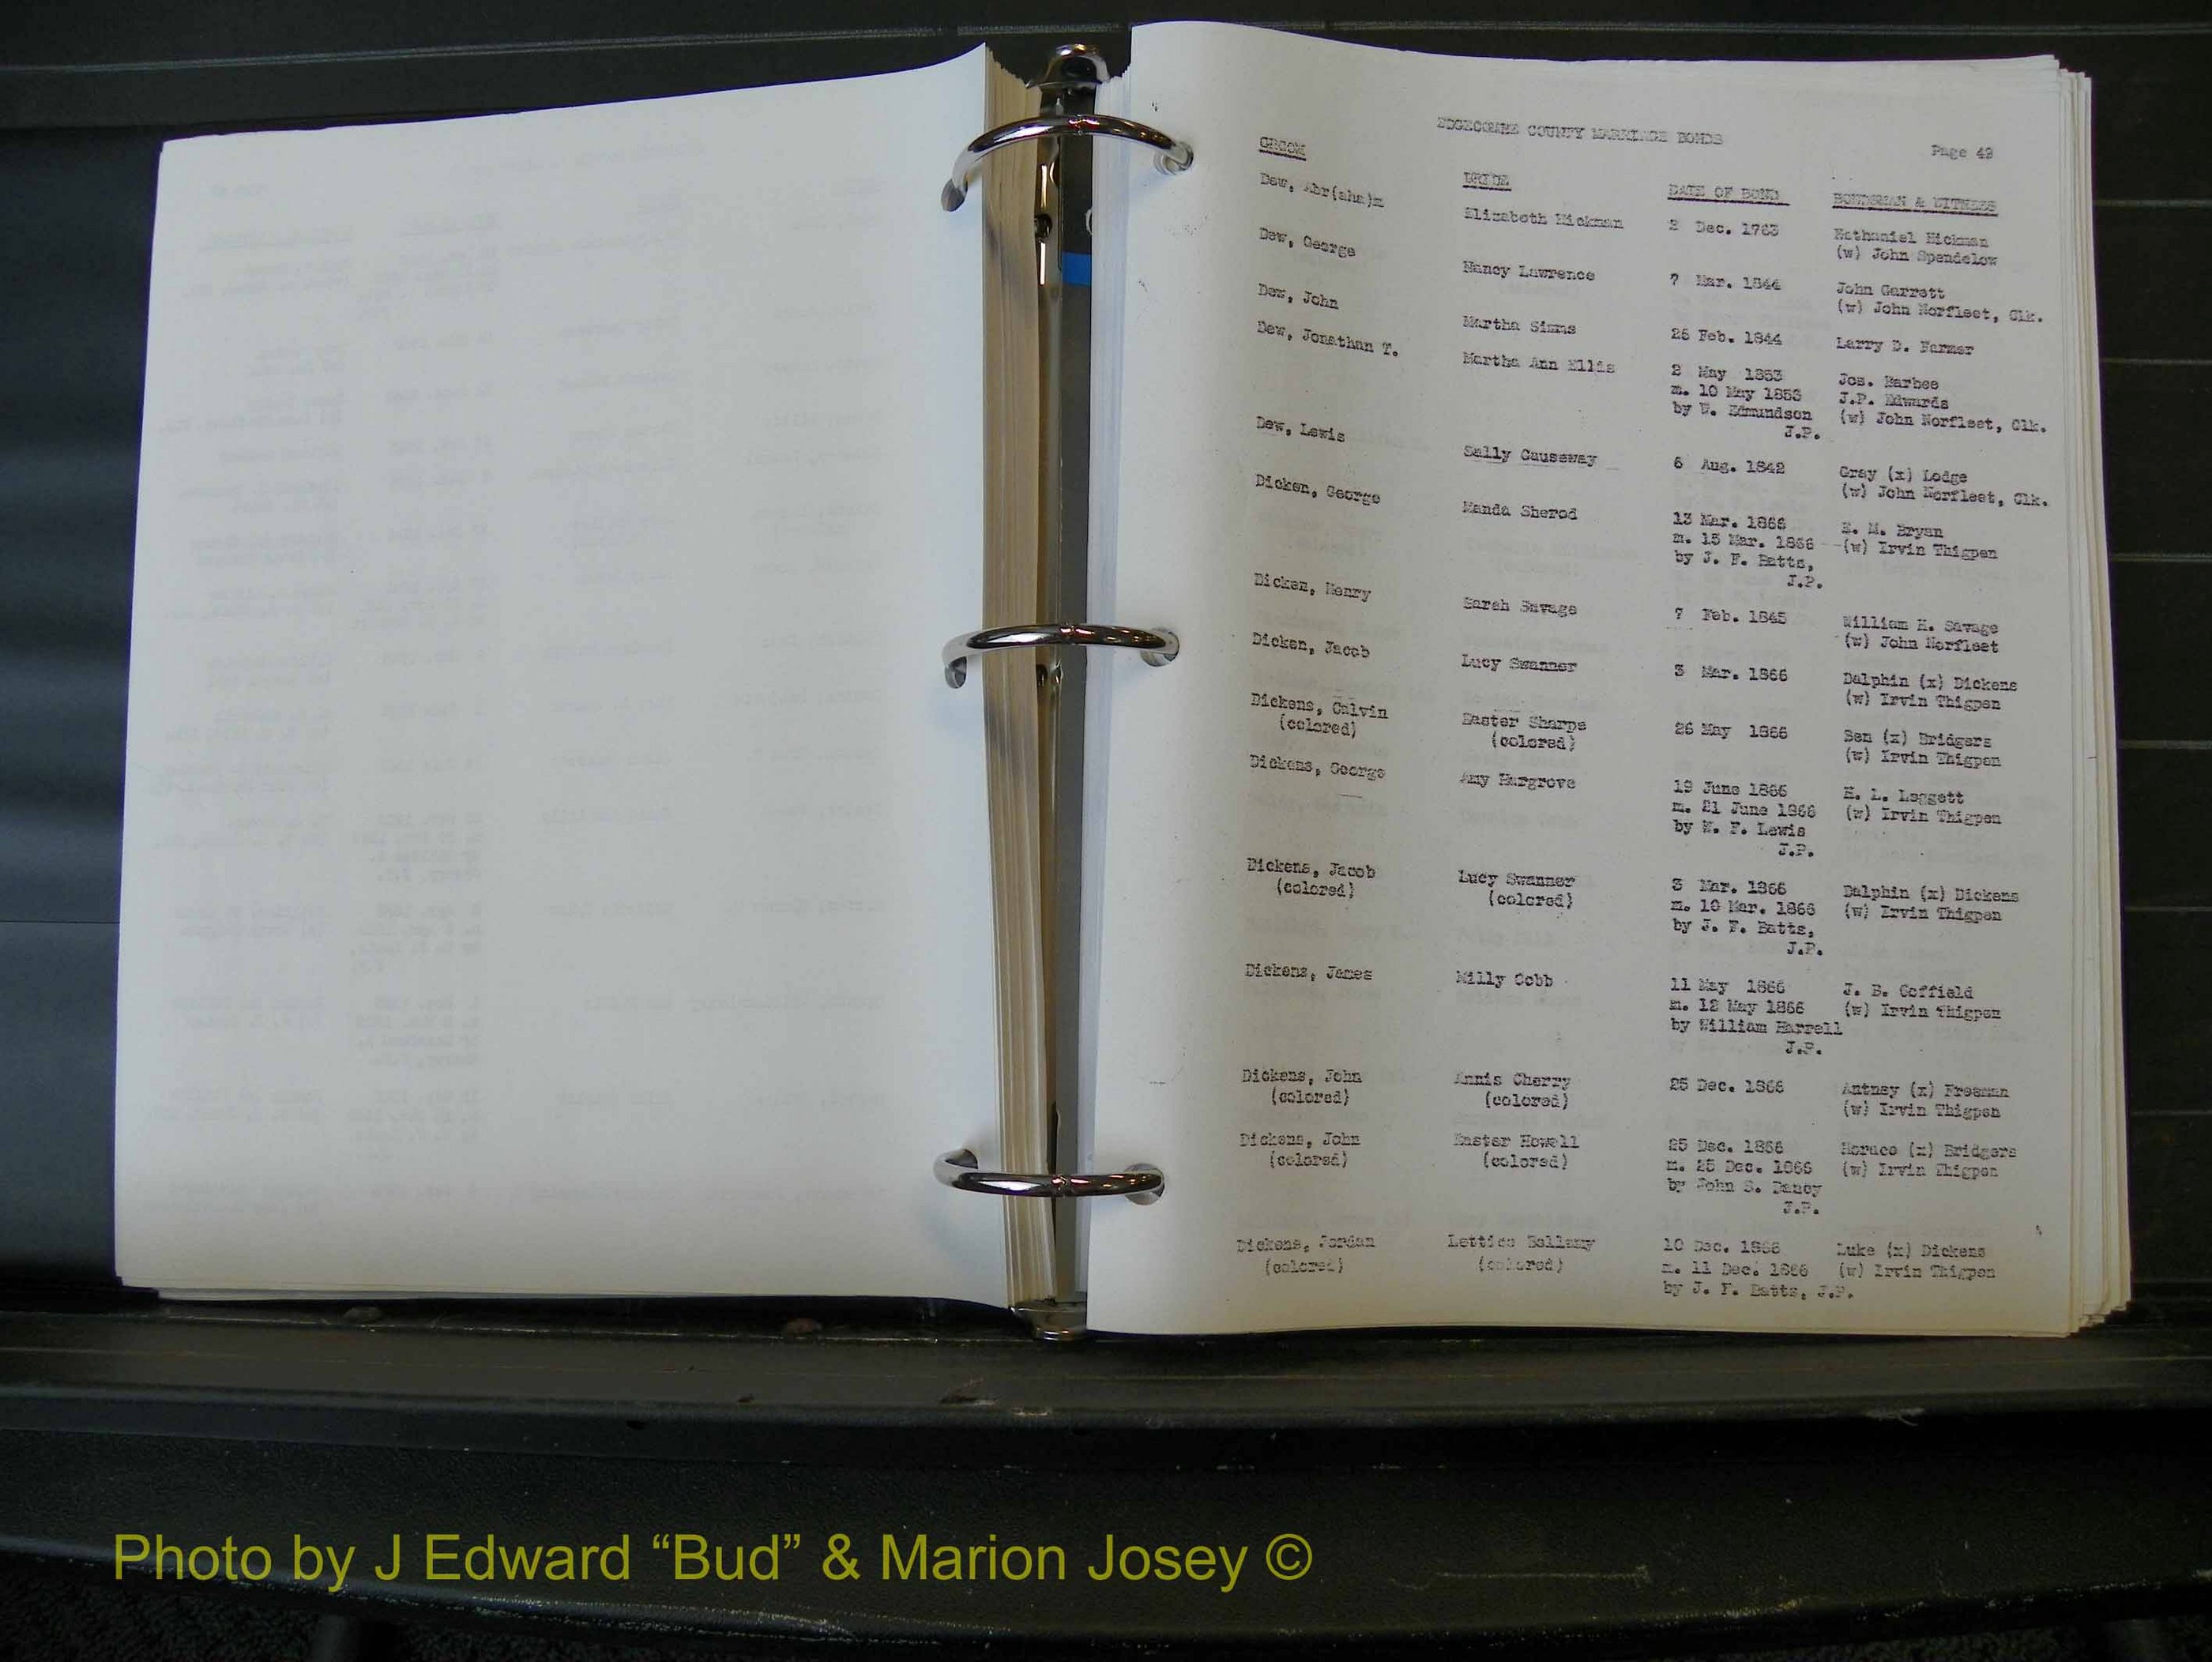 EDGECOMBE COUNTY MARRIAGE BONDS
Page 49
GROOM BRIDE DATE OF BOND BONDSMAN & WITNESS
Dew, Abr(aha)m Elizabeth Hickman 2 Dec. 1763 Nathaniel Hickman
(w) John Spendelow
Dew, George Nancy Lawrence 7 Mar. 1844 John Garrett
(w) John Norfleet, Clk.
Dew, John Martha Simms 26 Feb. 1844 Larry D. Farmer
Dew, Jonathan T. Martha Ann Ellis 2 May 1853 Jos. Barbee
m. 10 May 1853 J.P. Edwards
by W. Edmundson (w) John Norfleet, Clk.
J.P.
Dew, Lewis Sally Causeway 6 Aug. 1842 Gray (x) Lodge
(w) John Norfleet, Clk.
Dicken, George Manda Sherod 13 Mar. 1866 E. M. Bryan
m. 15 Mar. 1866 (w) Irvin Thigpen
by J. F. Batts,
J.P.
Dicken, Henry Sarah Savage 7 Feb. 1845 William H. Savage
(w) John Norfleet
Dicken, Jacob Lucy Swanner 3 Mar. 1866 Dalphin (x) Dickens
(w) Irvin Thigpen
Dickens, Calvin Easter Sharpe 26 May 1866 Ben (x) Bridgers
(colored) (colored) (w) Irvin Thigpen
Dickens, George Amy Hargrove 19 June 1866 H. L. Leggett
m. 21 June 1866 (w) Irvin Thigpen
by W. F. Lewis
J.P.
Dickens, Jacob Lucy Swanner 3 Mar. 1866 Dalphin (x) Dickens
(colored) (colored) m. 10 Mar. 1866 (w) Irvin Thigpen
by J. F. Batts,
J.P.
Dickens, James Milly Cobb 11 May 1866 J. B. Coffield
m. 12 May 1866 (w) Irvin Thigpen
by William Harrell
J.P.
Dickens, John Annis Cherry 25 Dec. 1866 Antney (x) Freeman
(colored) (colored) (w) Irvin Thigpen
Dickens, John Easter Howell 25 Dec. 1866 Horace (x) Bridgers
(colored) (colored) m. 25 Dec. 1866 (w) Irvin Thigpen
by John S. Dancy
J.P.
Dickens, Jordan Lettice Bellamy 10 Dec. 1866 Luke (x) Dickens
(colored) (colored) m. 11 Dec. 1866 (w) Irvin Thigpen
by J. F. Batts, J.P.
Photo by J Edward “Bud” & Marion Josey ©